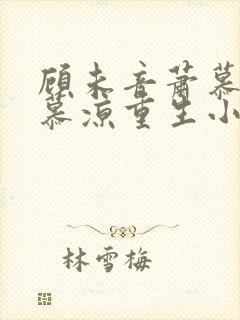 顾未音萧慕
慕凉重生小
林雪梅